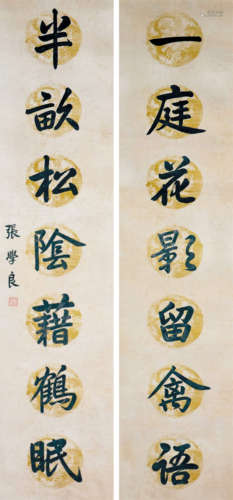 一庭花影留禽語
半畝松陰藉鶴眠
張學良